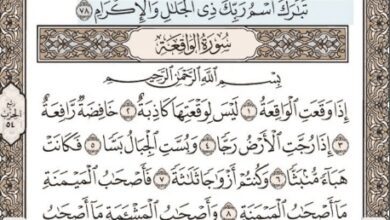 تَبَٰرَكَ ٱسْمُ رَبِّكَ ذِى ٱلْجَلَٰلِ وَٱلْإِكْرَامِ ٧٨
سُورَةُ الوَاقِعَةِ
بِسْمِ ٱللَّهِ ٱلرَّحْمَٰنِ ٱلرَّحِيمِ
إِذَا وَقَعَتِ ٱلْوَاقِعَةُ ١ لَيْسَ لِوَقْعَتِهَا كَاذِبَةٌ ٢ خَافِضَةٌ رَّافِعَةٌ
٣ إِذَا رُجَّتِ ٱلْأَرْضُ رَجًّا ٤ وَبُسَّتِ ٱلْجِبَالُ بَسًّا ٥ فَكَانَتْ
هَبَآءً مُّنۢبَثًّا ٦ وَكُنتُمْ أَزْوَٰجًا ثَلَٰثَةً ٧ فَأَصْحَٰبُ ٱلْمَيْمَنَةِ
مَآ أَصْحَٰبُ ٱلْمَيْمَنَةِ ٨ وَأَصْحَٰبُ ٱلْمَشْـَٔمَةِ مَآ أَصْحَٰبُ